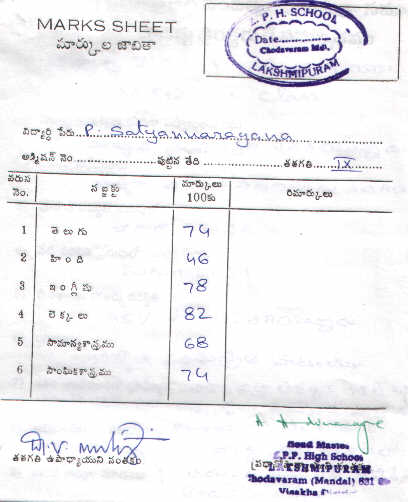 MARKS SHEET
మార్కుల జాబితా
Z.P.H. SCHOOL
Date
Chodavaram Mdl.
LAKSHMIPURAM
విద్యార్థి పేరు P. Satyannarayana
అడ్మిషన్ నెం పుట్టిన తేది తరగతి IX
వరుస నెం. సబ్జక్టు మార్కులు 100కు రిమార్కులు
1 తెలుగు 74
2 హింది 46
3 ఇంగ్లీషు 78
4 లెక్కలు 82
5 సామాన్యశాస్త్రము 68
6 సాంఘికశాస్త్రము 74
తరగతి ఉపాధ్యాయుని సంతకం
Head Master
Z.P.P. High School
LAKSHMIPURAM
Chodavaram (Mandal) 531
Visakha